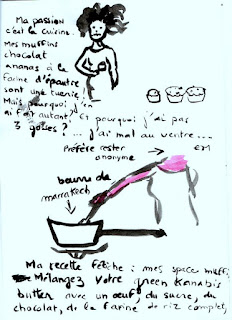 Ma passion
c'est la cuisine.
Mes muffins
chocolat
ananas à la
farine d'épautre
sont une tuerie.
Mais pourquoi j'en
ai fait autant? Et pourquoi j'ai pas
3 gosses? ... j'ai mal au ventre...
Préfère rester
anonyme
beurre de
marrakech
Ma recette fétiche : mes space muffi
Mélangez votre green kanabis
butter avec un oeuf, du sucre, du
chocolat, de la farine de riz complet,